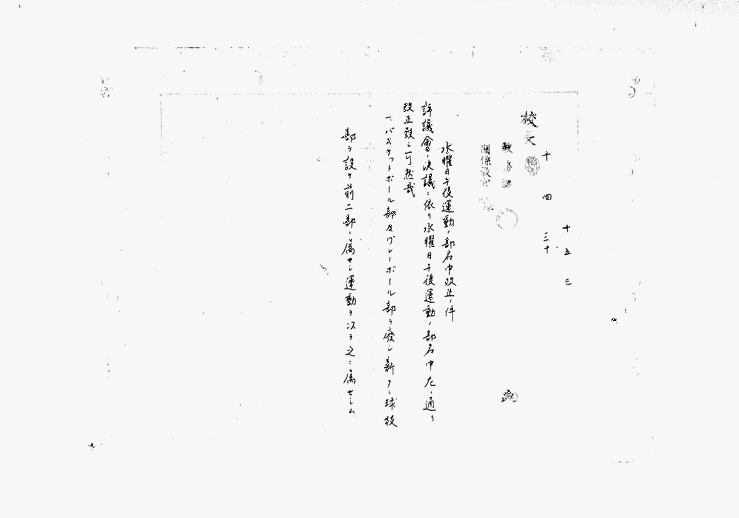 十五、三
十 四 三十
校長
教務課
関係教官
水曜日午後運動ノ部名中改正ノ件
評議會ノ決議ニ依リ水曜日午後運動ノ部名中左ノ通リ
改正致シ可然哉
一、バスケットボール部及ヴレーボール部ヲ廢シ新タニ球技
部ヲ設ケ前二部ニ属セシ運動ヲ次ヲ之ニ属セシム